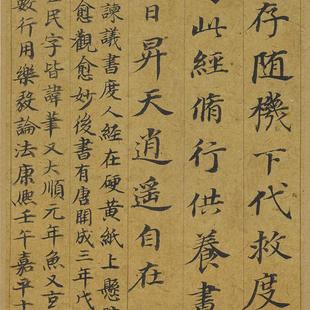 存随機下代救度
此經脩行供養書
日昇天逍遥自在
諫議書度人經在硬黄紙上懸
愈觀愈妙後書有唐開成三年戊
民字皆諱筆又大順元年魚又玄
數行用樂毅論法康熙壬午嘉平十